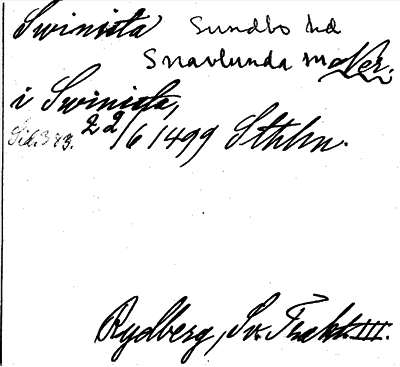 Svinista Sundbo hd
Snavlunda sn Ner.
i Svinista,
Sid. 383. 22/6 1499 Sthlm.
Rydberg, Sv. Trakt. III.